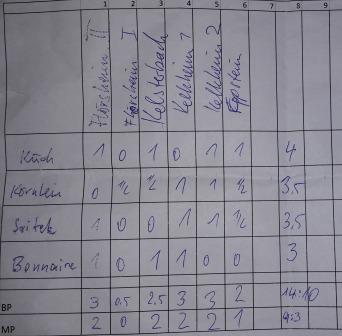 1 2 3 4 5 6 7 8 9
Flörsheim II Flörsheim I Kelsterbach Kelkheim 1 Kelkheim 2 Eppstein
Küch 1 0 1 0 1 1 4
0 ½ ½ 1 1 ½ 3,5
Spitek 1 0 0 1 1 ½ 3,5
Bonnaire 1 0 1 1 0 0 3
BP 3 0.5 2.5 3 3 2 14:10
MP 2 0 2 2 2 1 9:3